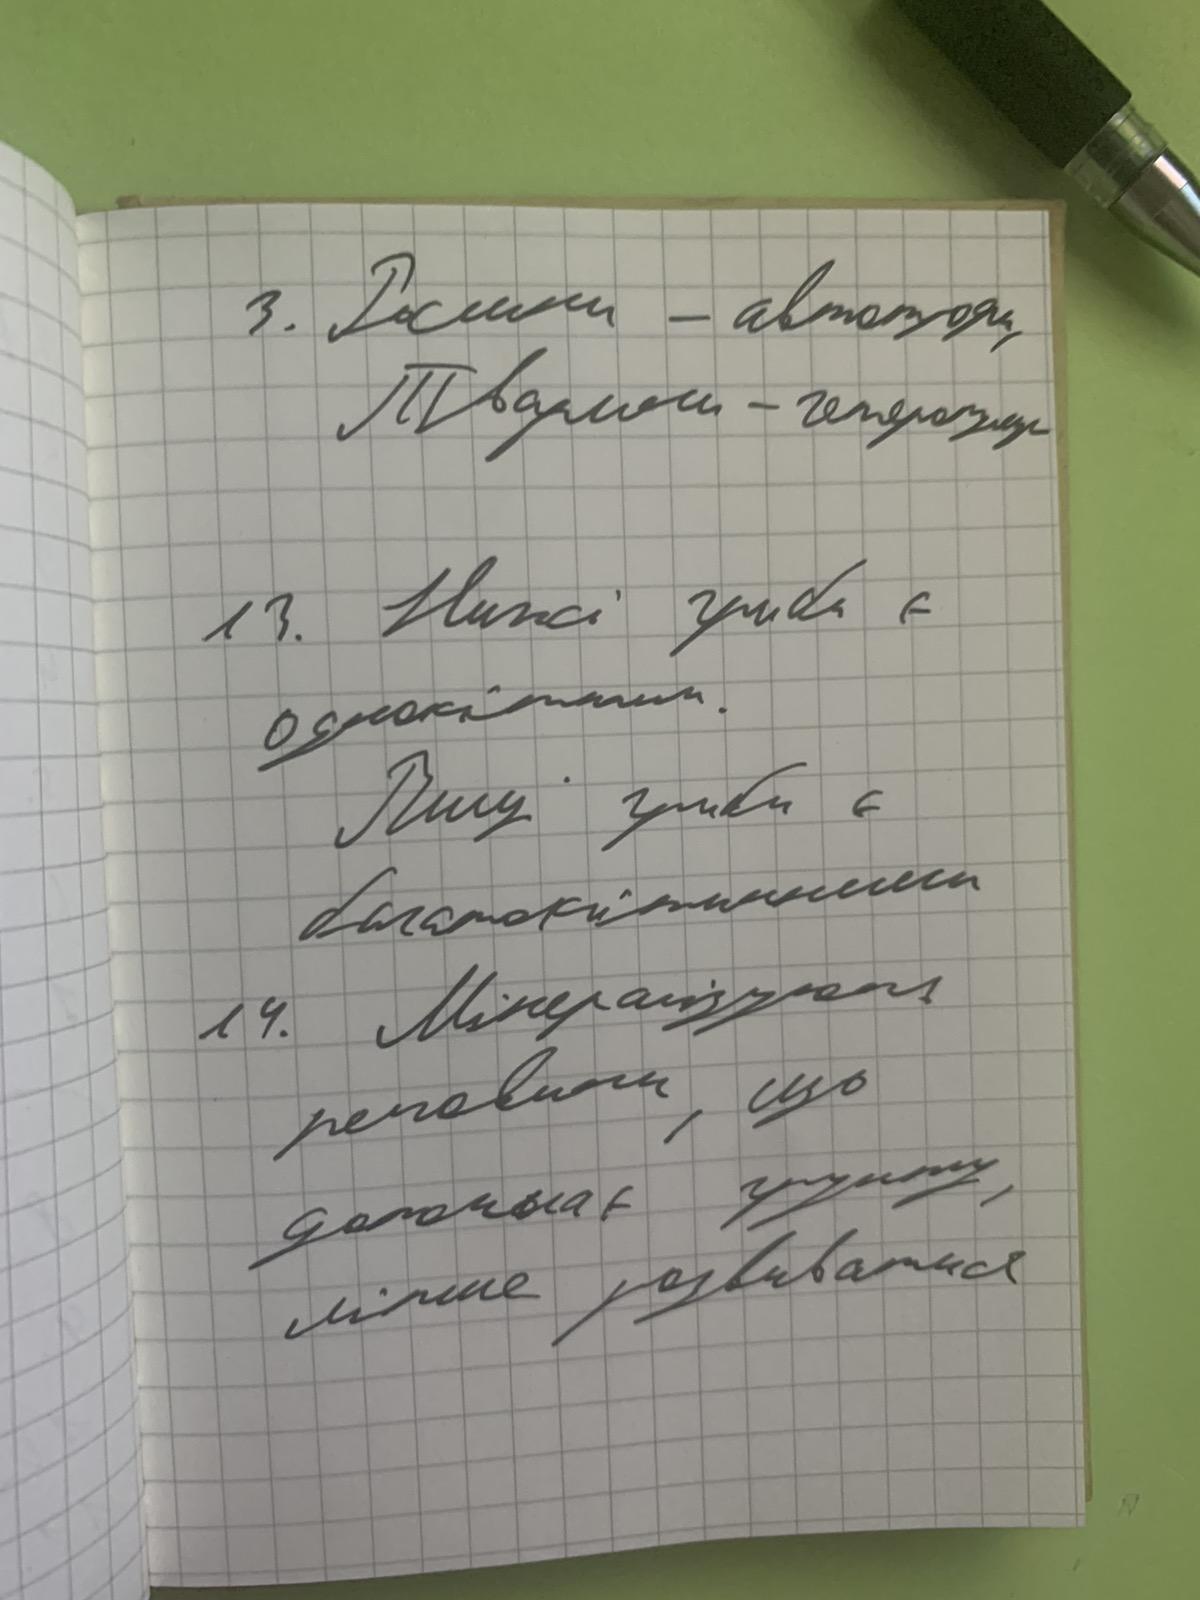 3. Рослини - автотрофи,
Тварини - гетеротрофи
13. Нижчі гриби є
одноклітинними.
Вищі гриби є
багатоклітинними
14. Мінералізують
речовини, що
допомагає ґрунту,
ліпше розвиватися